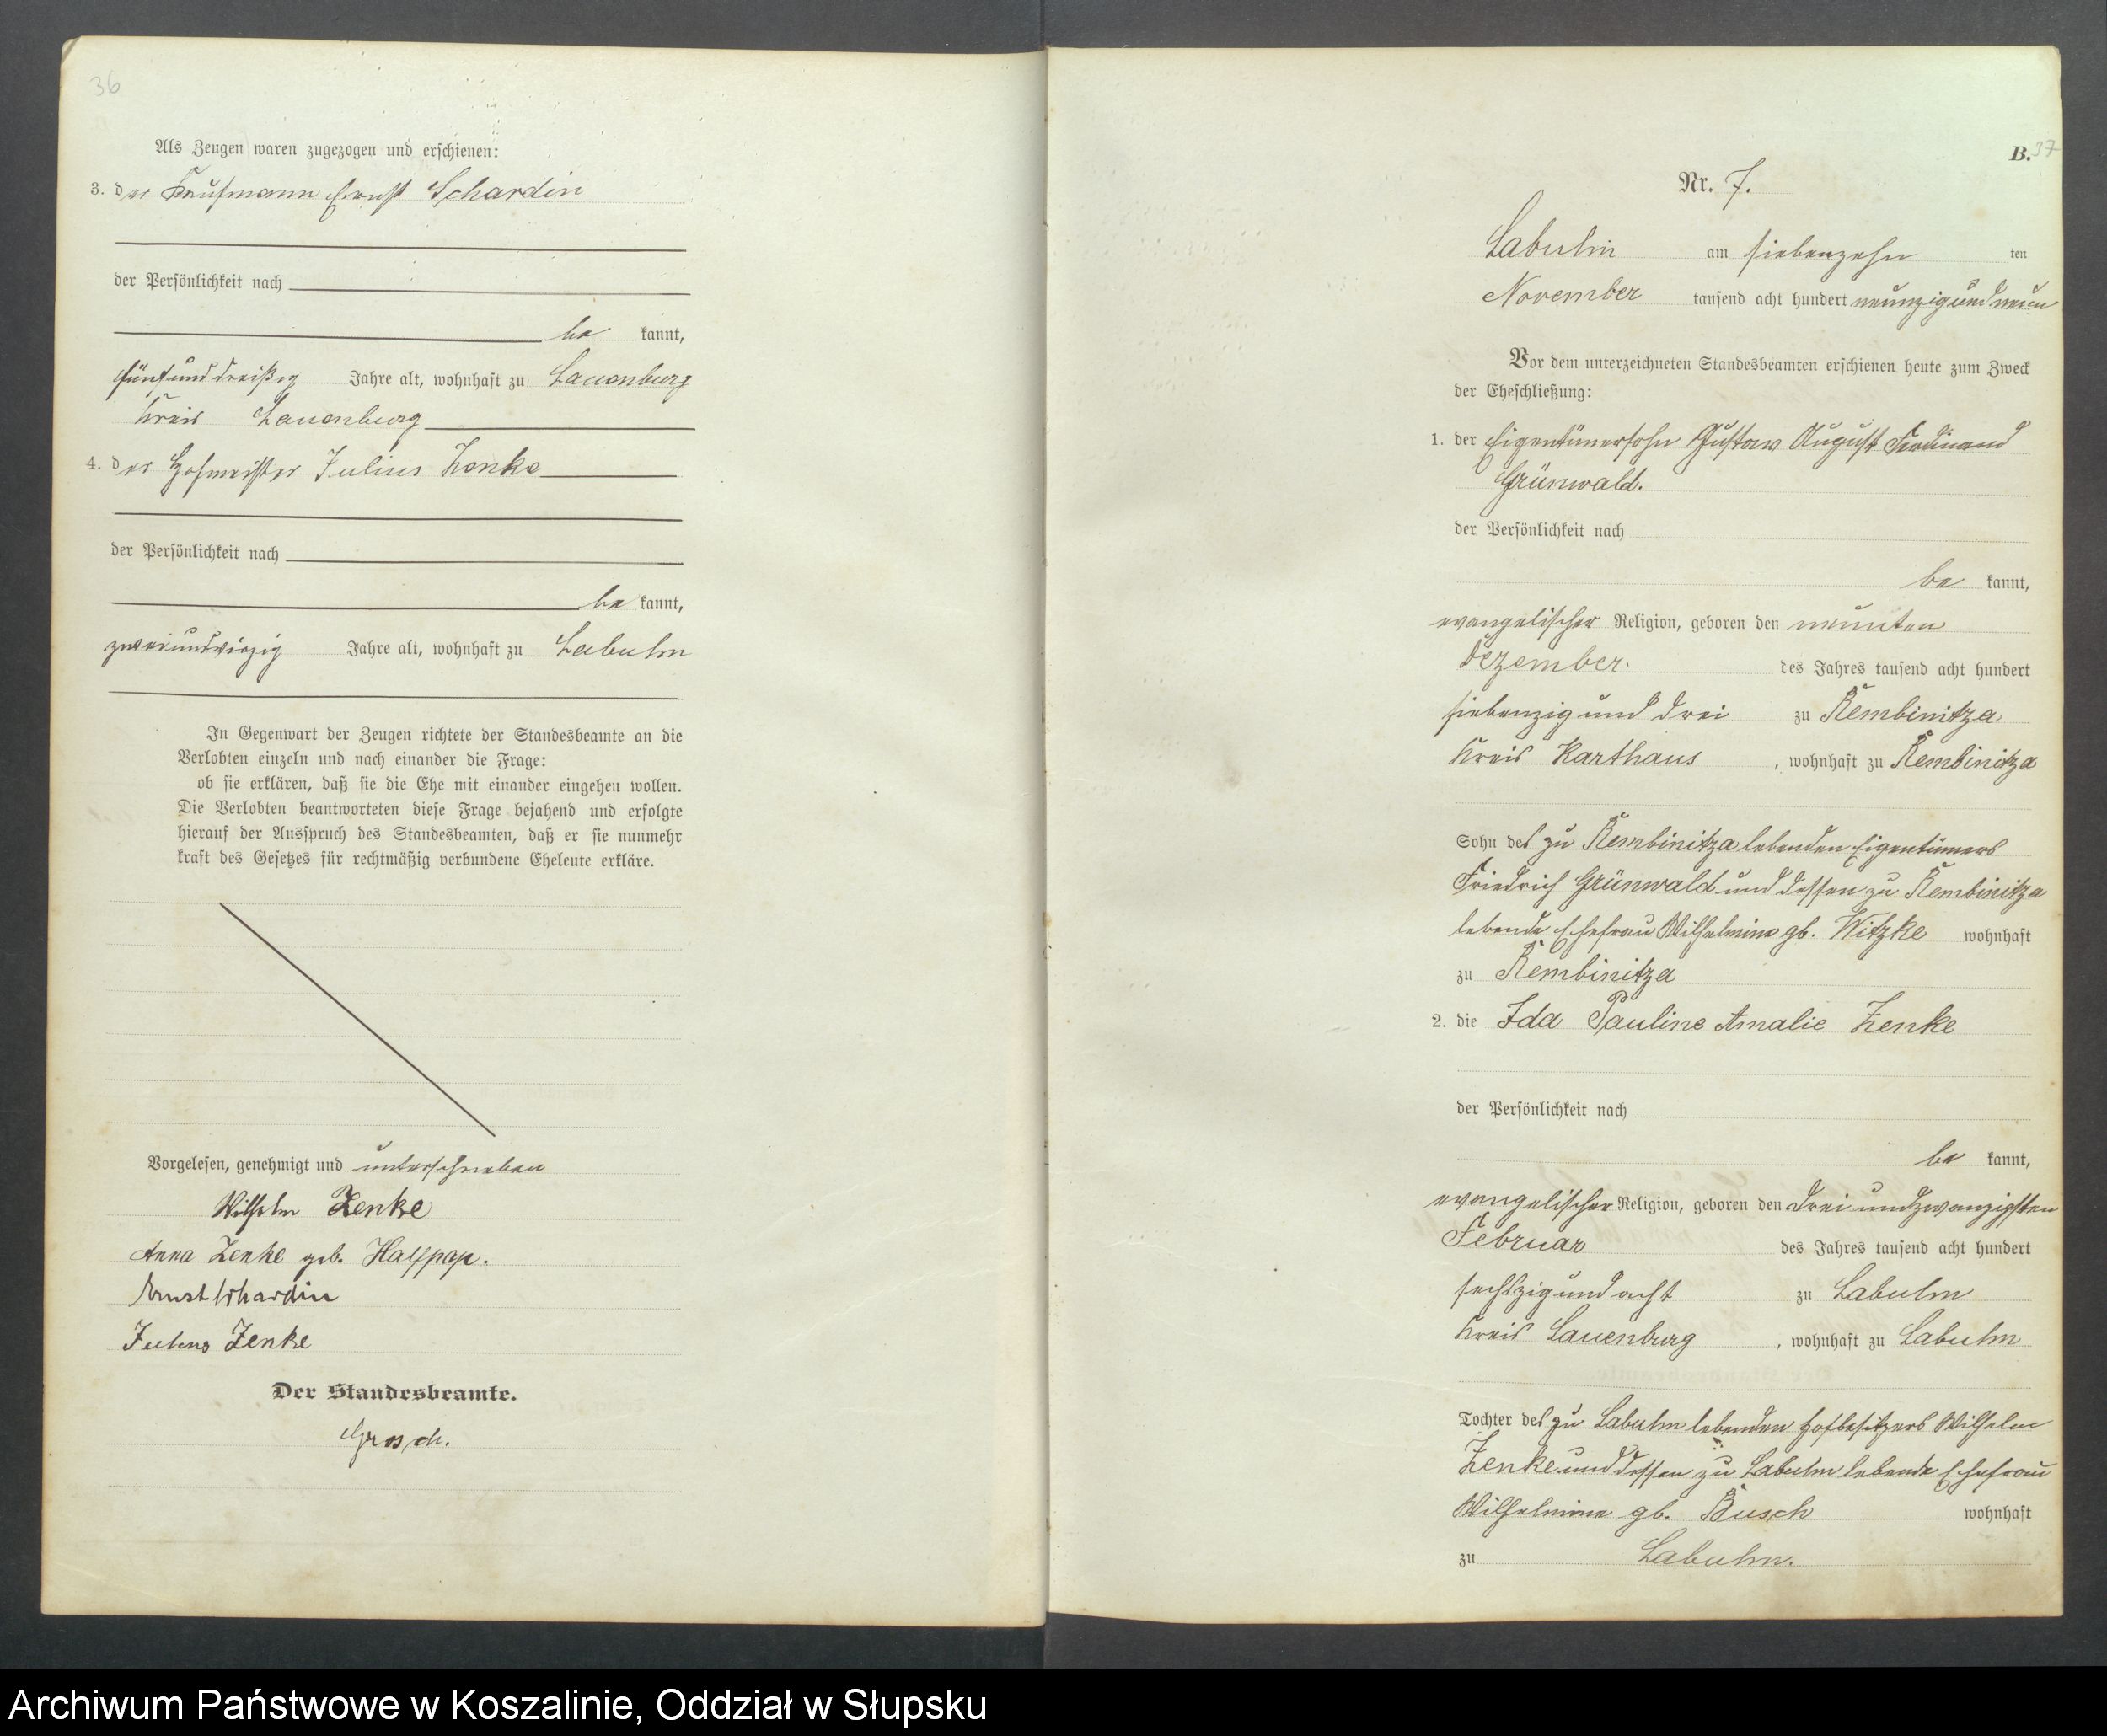 36
Als Zeugen waren zugezogen und erschienen:
3. der Kaufmann Ernst Schardin
der Persönlichkeit nach
be kannt,
fünfunddreißig Jahre alt, wohnhaft zu Lauenburg
Kreis Lauenburg
4. der Hofmeister Julius Zenke
der Persönlichkeit nach
be kannt,
zweiundvierzig Jahre alt, wohnhaft zu Labuhn
In Gegenwart der Zeugen richtete der Standesbeamte an die
Verlobten einzeln und nach einander die Frage:
ob sie erklären, daß sie die Ehe mit einander eingehen wollen.
Die Verlobten beantworteten diese Frage bejahend und erfolgte
hierauf der Ausspruch des Standesbeamten, daß er sie nunmehr
kraft des Gesetzes für rechtmäßig verbundene Eheleute erkläre.
Vorgelesen, genehmigt und unterschrieben
Wilhelm Zenke
Anna Zenke geb. Halfpap.
Ernst Schardin
Julius Zenke
Der Standesbeamte.
Grosch.
B. 37
Nr. 7.
Labuhn am siebenzehn ten
November tausend acht hundert neunzig und neun
Vor dem unterzeichneten Standesbeamten erschienen heute zum Zweck
der Eheschließung:
1. der Eigentümersohn Gustav August Ferdinand
Grünwald.
der Persönlichkeit nach
be kannt,
evangelischer Religion, geboren den neunten
Dezember. des Jahres tausend acht hundert
siebenzig und drei zu Kembinitza
Kreis Karthaus , wohnhaft zu Kembinitza
Sohn des zu Kembinitza lebenden Eigentümers
Friedrich Grünwald und dessen zu Kembinitza
lebende Ehefrau Wilhelmine gb. Witzke wohnhaft
zu Kembinitza
2. die Ida Pauline Amalie Zenke
der Persönlichkeit nach
be kannt,
evangelischer Religion, geboren den drei und zwanzigsten
Februar des Jahres tausend acht hundert
sechszig und acht zu Labuhn
Kreis Lauenburg , wohnhaft zu Labuhn
Tochter des zu Labuhn lebenden Hofbesitzers Wilhelm
Zenke und dessen zu Labuhn lebende Ehefrau
Wilhelmine gb. Busch wohnhaft
zu Labuhn.
Archiwum Państwowe w Koszalinie, Oddział w Słupsku